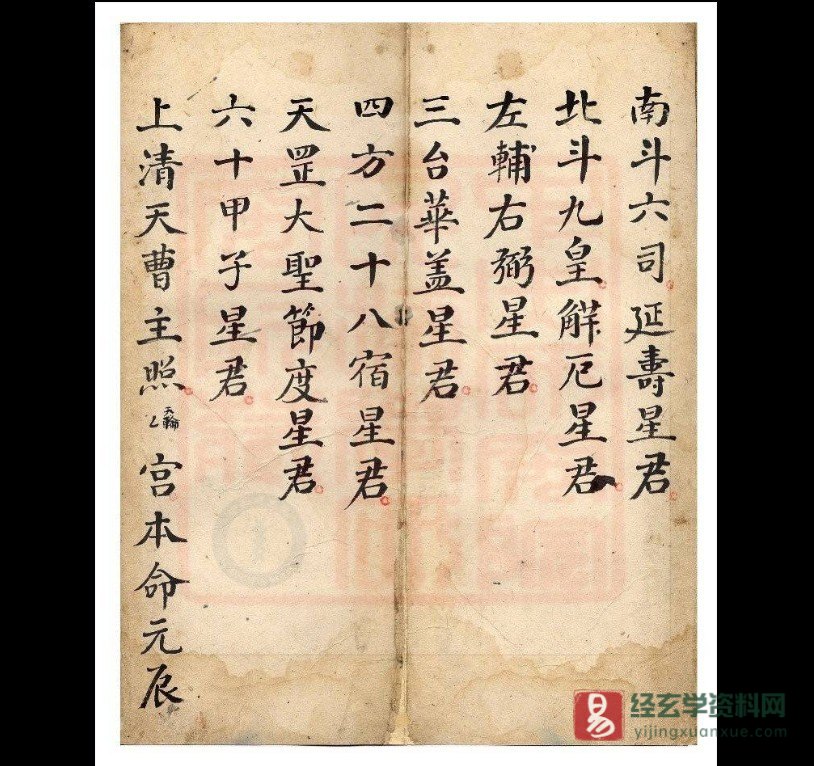 南斗六司延壽星君
北斗九皇觧厄星君
左輔右弼星君
三台華盖星君
四方二十八宿星君
天罡大聖節度星君
六十甲子星君
上清天曹主照宫本命元辰
经玄学资料网
yijingxuanxue.com